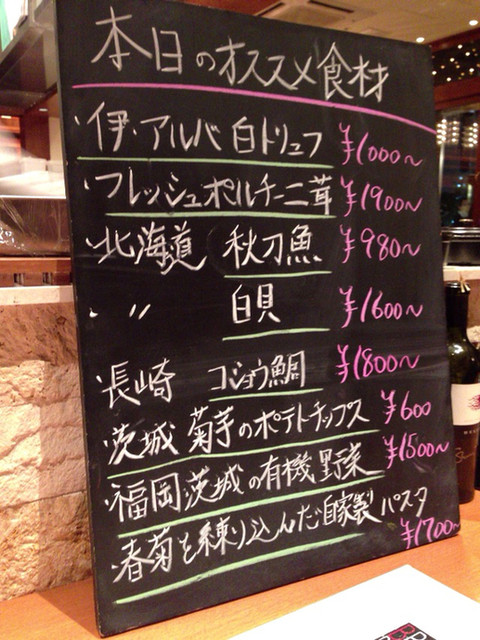 本日のオススメ食材
・伊・アルバ 白トリュフ ¥1000〜
・フレッシュポルチーニ茸 ¥1900〜
・北海道 秋刀魚 ¥980〜
・〃 白貝 ¥1600〜
・長崎 コショウ鯛 ¥1800〜
・茨城 菊芋のポテトチップス ¥600
・福岡茨城の有機野菜 ¥1500〜
・春菊を練り込んだ自家製パスタ ¥1700〜